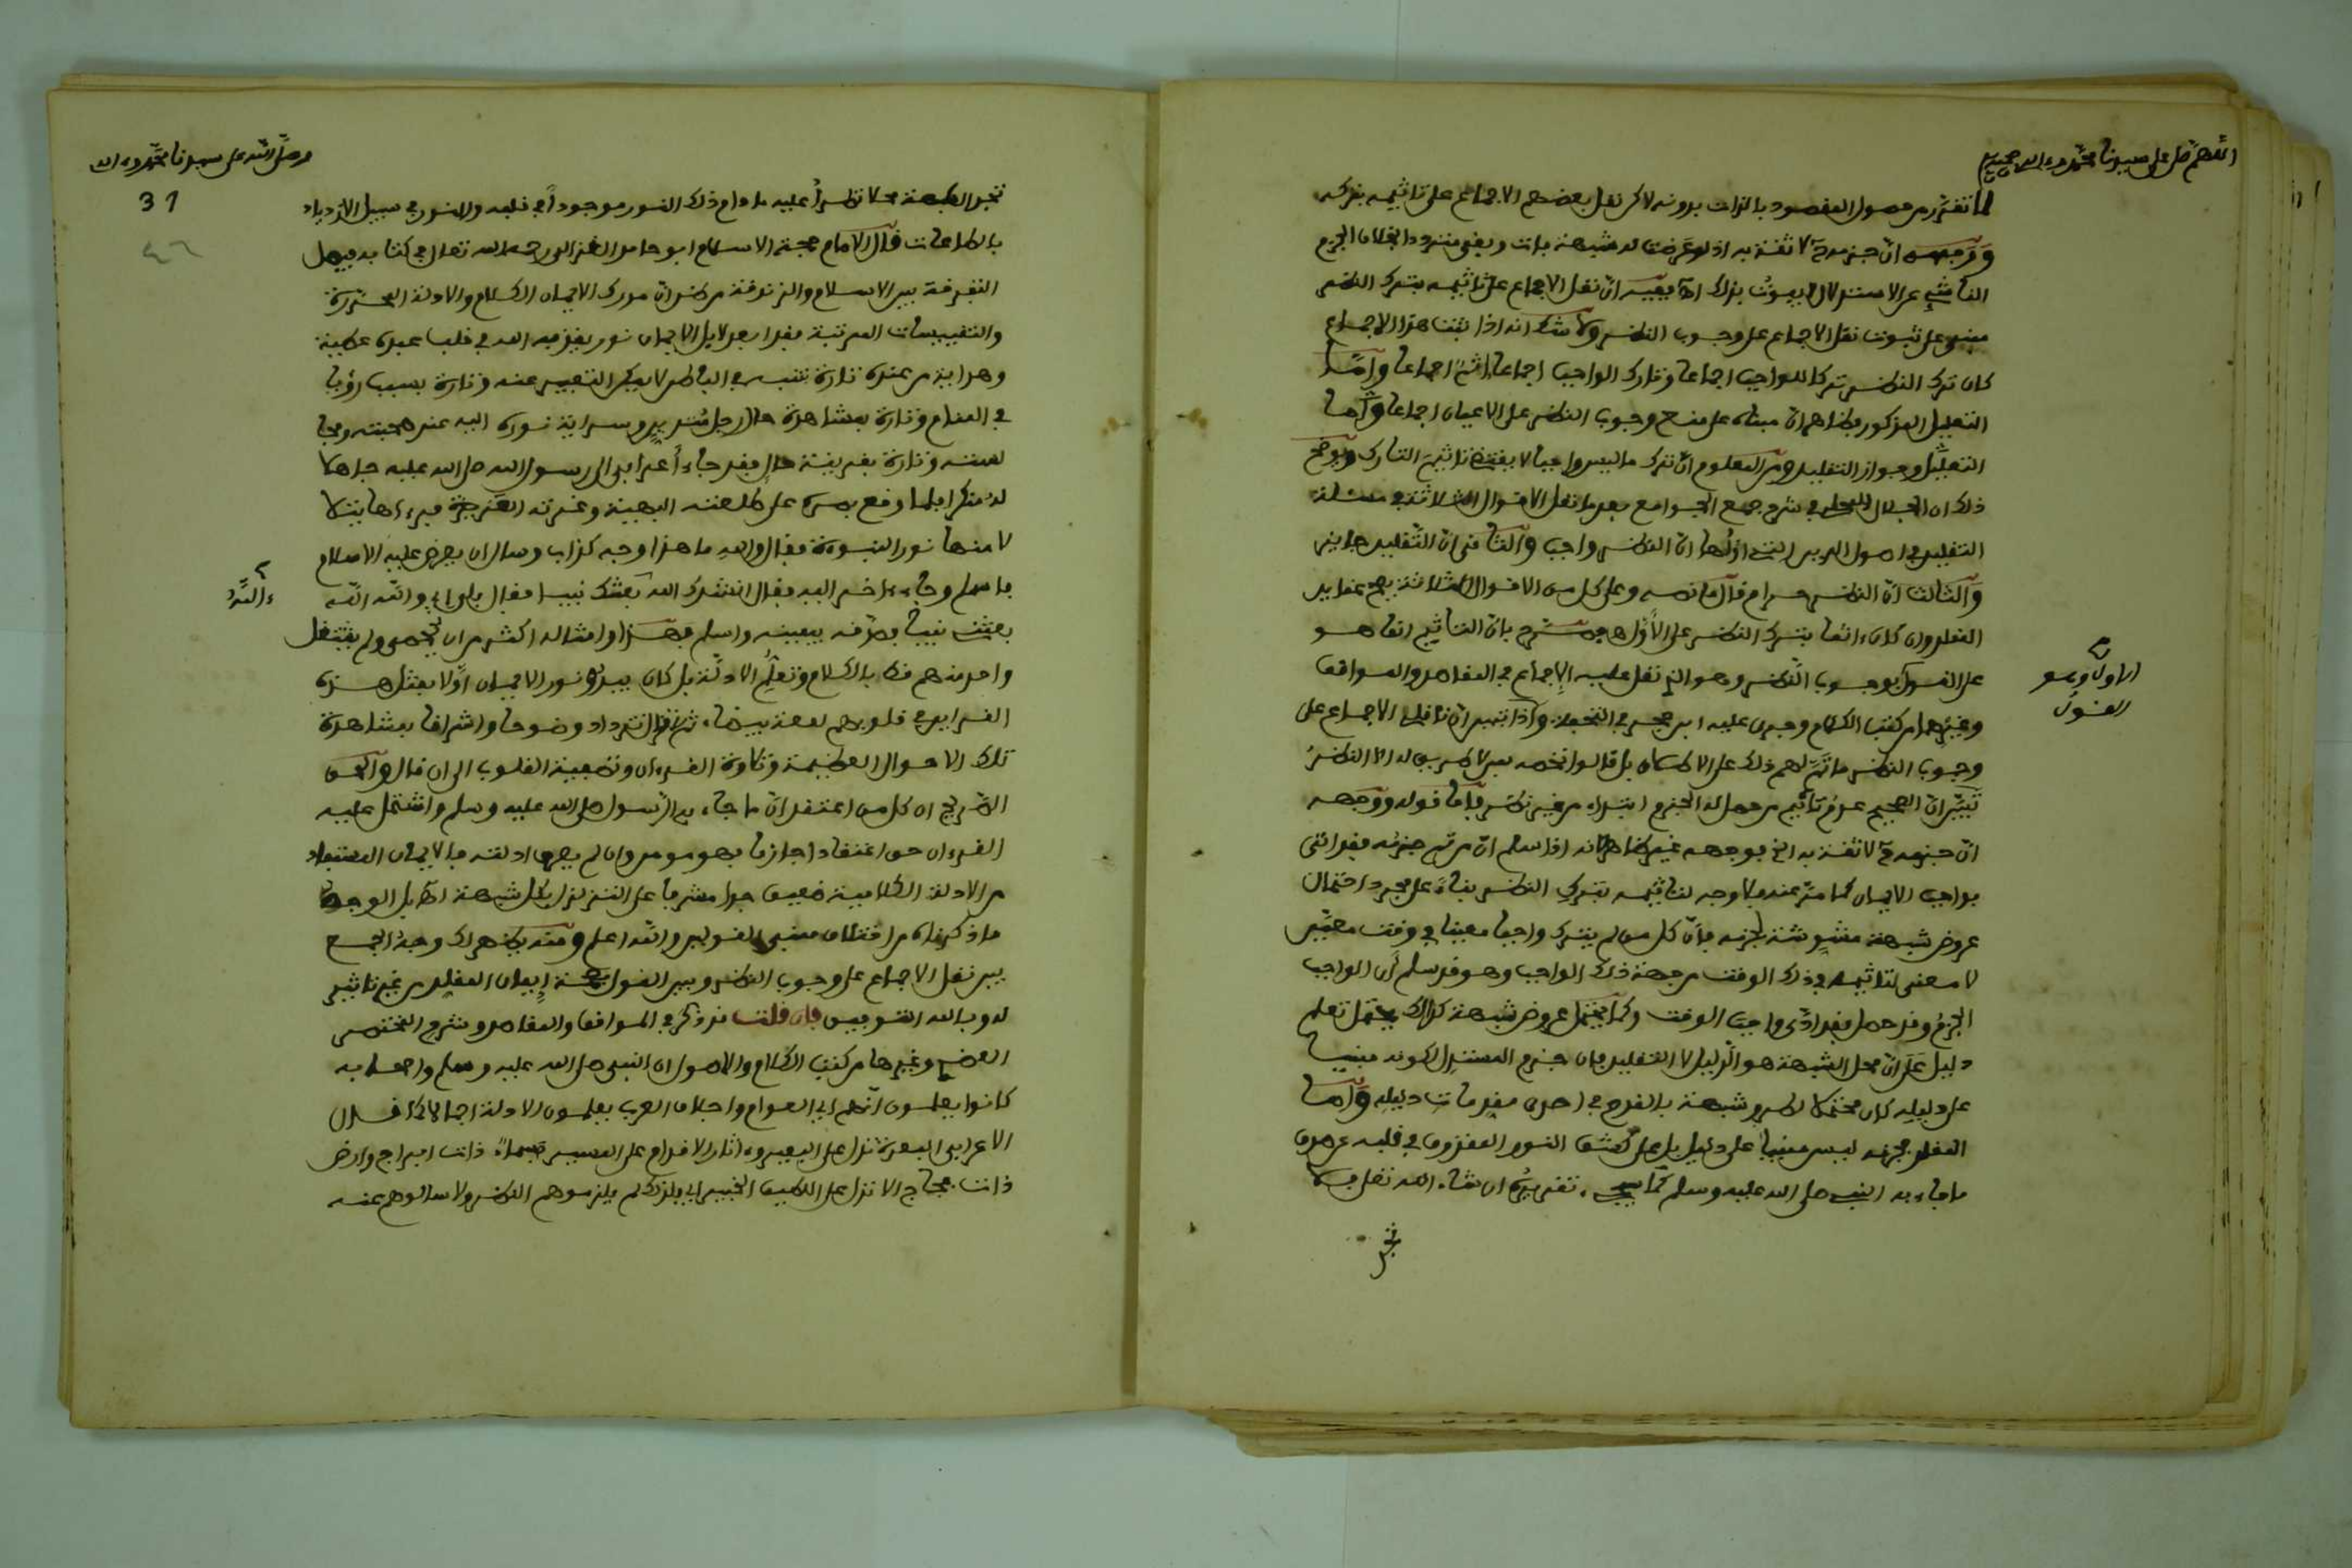 اللهم صل على سيدنا محمد وءاله وصحبه
لما تقرر من حصول المقصود بالذات بدونه لاكن نقل بعضهم الاجماع على تاثيمه بتركه
ووجهه ان جزمه ح لا ثقة به اذ لو عرضت له شبهة فات وبقي مترددا بخلاف الجزم
الناشئ عن الاستدلال لا يفوت بذلك اهـ ففيه ان نقل الاجماع على تاثيمه بترك النظر
مبنى على ثبوت نقل الاجماع على وجوب النظر ولا شك انه اذا ثبت هذا الاجماع
كان ترك النظر تركا للواجب اجماعا وتارك الواجب اجماعا ءاثم اجماعا واما
التعليل المذكور فظاهر ان مبناه على منع وجوب النظر على الاعيان اجماعا واما
التعليل وجواز التقليد ومن المعلوم ان ترك ما ليس واجبا لا يقتضي تاثيم التارك ويوضح
ذلك ان الجلال المحلى في شرح جمع الجوامع بعد ما نقل الاقوال الثلاثة في مسئلة
التقليد في اصول الدين التي اولها ان النظر واجب والثانى ان التقليد جايز
والثالث ان النظر حرام قال ما نصه وعلى كل من الاقوال الثلاثة يصح عقايد
المقلد وان كان ءاثما بترك النظر على الاول اهـ فصرح بان التاثيم انما هو
على القول بوجوب النظر وهو الذي نقل عليه الاجماع في المقاصد والمواقف
الاول وهو
القول
وغيرهما من كتب الكلام وجرى عليه ابن حجر في التحفة. واذا تبين ان ناقلى الاجماع على
وجوب النظر ما تم لهم ذلك على الاطلاق بل قالوا نخصه بمن لا طريق له الا النظر
تبين ان الصحيح عدم تاثيم من حصل له الجزم ابتداء من غير نظر فاما قوله ووجهه
ان جزمه ح لا ثقة به الخ فوجهه غير ظاهر لانه اذا سلم ان من تم جزمه فقد اتى
بواجب الايمان كما مر عنه فلا وجه لتاثيمه بترك النظر بناء على مجرد احتمال
عروض شبهة مشوشة لجزمه فان كل من لم يترك واجبا معينا في وقت معين
لا معنى لتاثيمه في ذلك الوقت من جهة ذلك الواجب وهو قد سلم ان الواجب
الجزم وقد حصل فقد ادى واجب الوقت وكما يحتمل عروض شبهة كذلك يحتمل تعلم
دليل على ان محل الشبهة هو الدليل لا التقليد فان جزم المستدل لكونه مبنيا
على دليله كان محتملا لطرو شبهة بالقدح في احدى مقدمات دليله واما
المقلد فجزمه ليس مبنيا على دليل بل على كشف النور المقذوف في قلبه عن صدق
ما جاء به النبي صلى الله عليه وسلم كما سيجيء تقريره ان شاء الله تعلى فلا
تجر
وصلى الله على سيدنا محمد وءاله
31
٤٦
تجر الشبهة محلا تطرأ عليه ما دام ذلك النور موجوداً في قلبه والنور في سبيل الازدياد
بالطاعات قال الامام حجة الاسلام ابو حامد الغزالي رحمه الله تعالى في كتابه فيصل
التفرقة بين الاسلام والزندقة من ظن ان مدرك الايمان الكلام والادلة المحررة
والتقسيمات المرتبة فقد ابعد لا بل الايمان نور يقذفه الله في قلب عبده عطية
وهداية من عنده تارة بتنبيه في الباطن لا يمكن التعبير عنه وتارة بسبب رؤيا
في المنام وتارة بمشاهدة حال رجل متدين وسراية نوره اليه عند صحبته ومجا
لسته وتارة بقرينة حال فقد جاء أعرابي الى رسول الله صلى الله عليه جاهلا
له منكرا فلما وقع بصره على طلعته البهية وغرته الغريرة فرءاها يتلا
لا منها نور النبوءة فقال والله ما هذا وجه كذاب وسال ان يعرض عليه الاسلام
فاسلم وجاء ءاخر اليه فقال انشدك الله ءالله بعثك نبيا فقال بلى اي والله الله
بعثنى نبيا فصدقه بيمينه واسلم فهذا وامثاله اكثر من ان يحصى ولم يشتغل
واحد منهم قط بالكلام وتعلم الادلة بل كان يبدو نور الايمان اولا بمثل هذه
القراين في قلوبهم لمعة بيضاء ثم لا تزال تزداد وضوحا واشراقا بمشاهدة
تلك الاحوال العظيمة وتلاوة القرءان وتصفية القلوب الى ان قال والحق
الصريح ان كل من اعتقد ان ما جاء به الرسول صلى الله عليه وسلم واشتمل عليه
القرءان حق اعتقادا جازما فهو مومن وان لم يعرف ادلته فالايمان المستفاد
من الادلة الكلامية ضعيف جدا مشرف على التزلزل بكل شبهة اهـ بل الوجه
ما ذكرناه من اختلاف مبنى القولين والله اعلم ومنه يظهر لك وجه الجمع
بين نقل الاجماع على وجوب النظر وبين القول بصحة إيمان المقلد من غير تاثيم
له وبالله التوفيق فان قلت قد ذكر في المواقف والمقاصد وشرح المختصر
العضدي وغيرها من كتب الكلام والاصول ان النبي صلى الله عليه وسلم واصحابه
كانوا يعلمون انهم اي العوام واجلاف العرب يعلمون الادلة اجمالا كما قال
الاعرابى البعرة تدل على البعير وءاثار الاقدام على المسير فسماء ذات ابراج وارض
ذات فجاج الا تدل على اللطيف الخبير اي فلذلك لم يلزموهم النظر ولا سالوهم عنه